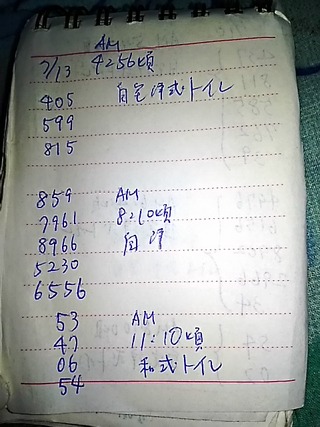 AM
7/13 4256頃
405 自宅洋式トイレ
599
815
859 AM
7961 8:10頃
8966 自洋
5230
6556
53 AM
47 11:10頃
06 和式トイレ
54